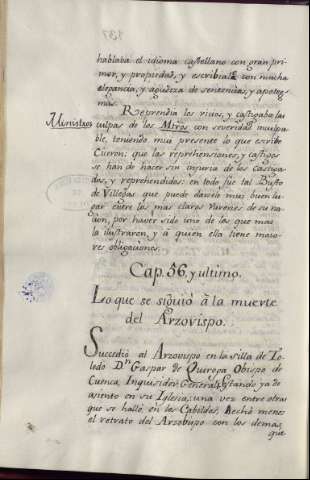 hablaba el idioma castellano con gran pri-
mor, y propiedad, y escribiale con mucha
elegancia, y agudeza de sentencias, y apoteg-
mas.
Reprendia los vicios, y castigaba las
Ministros
culpas de los Mros. con severidad inculpa-
ble, teniendo mui presente lo que escribe
Ciceron: que las reprehensiones, y castigos
se han de hacer sin injuria de los castiga-
dos, y reprehendidos: en todo fue tal Busto
de Villegas que puede darsele mui buen lu-
gar entre los mas claros Varones de su na-
cion, por haver sido uno de los que mas
la ilustraron, y à quien ella tiene maio-
res obligaciones.
Cap. 56. y ultimo.
Lo que se siguiò à la muerte
del Arzovispo.
Succediò al Arzovispo en la silla de To-
ledo Dn. Gaspar de Quiroga Obispo de
Cuenca, Inquisidor General; Estando ya de
asiento en su Iglesia; una vez entre otras
que se hallò en los Cabildos, hechò menos
el retrato del Arzobispo con los demas,
que